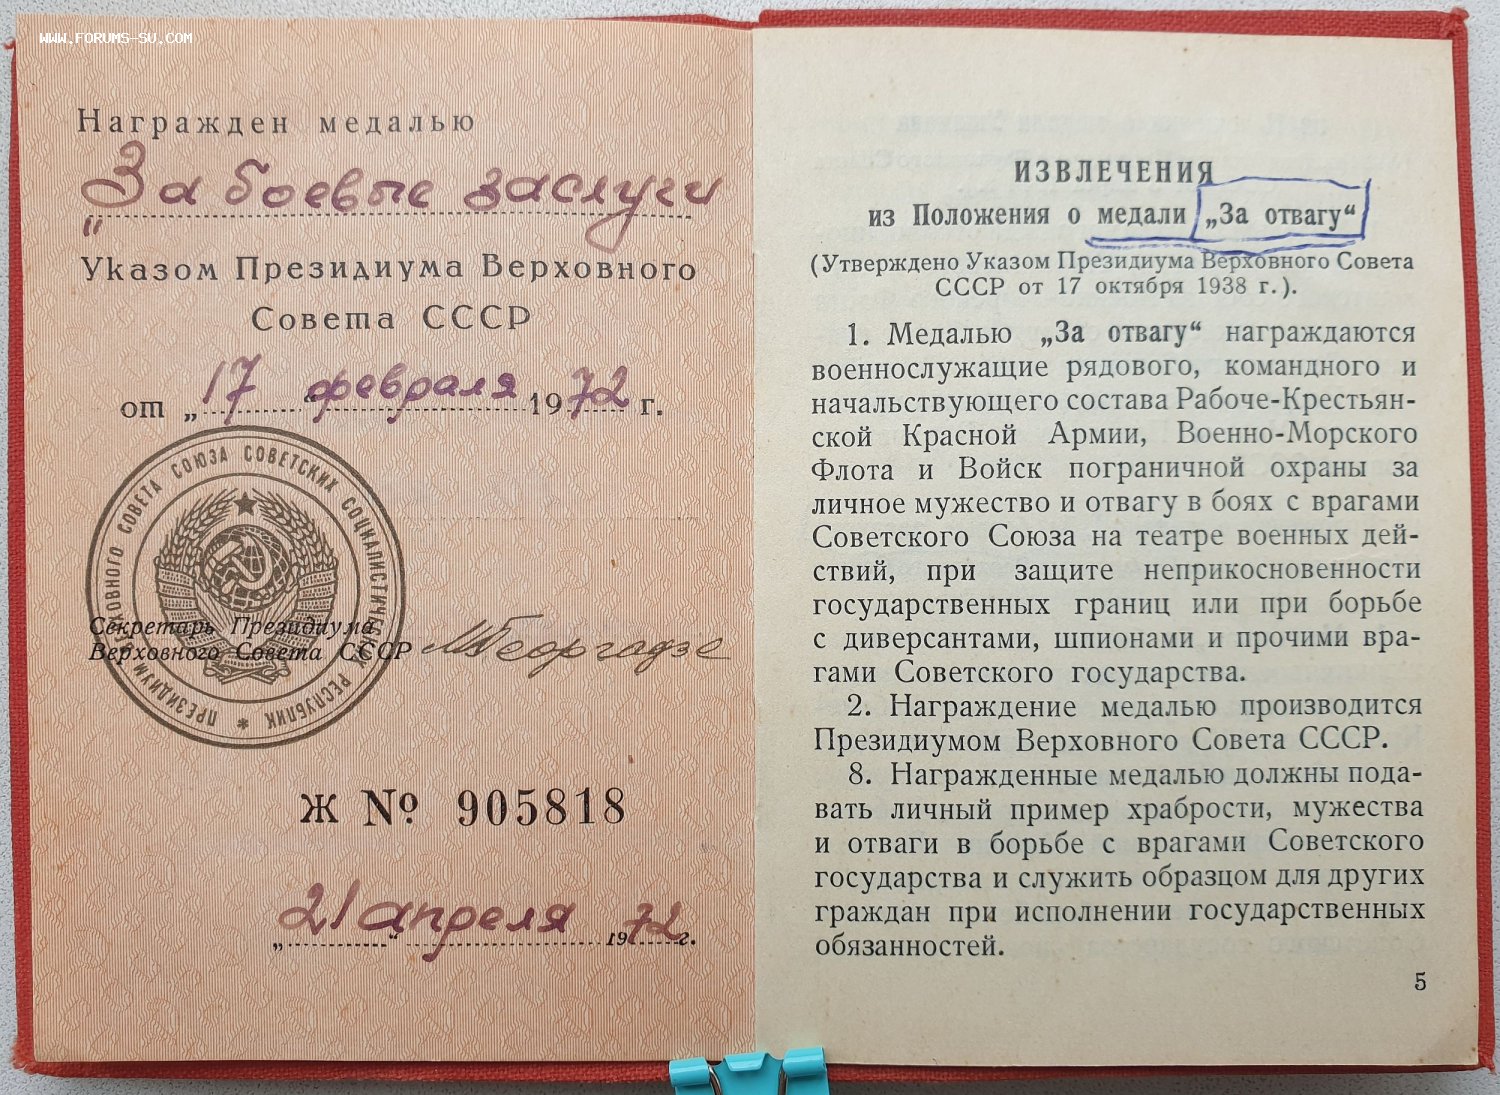 WWW.FORUMS-SU.COM
Награжден медалью
„За боевые заслуги
Указом Президиума Верховного
Совета СССР
от „17“ февраля 1972 г.
ПРЕЗИДИУМ ВЕРХОВНОГО СОВЕТА СОЮЗА СОВЕТСКИХ СОЦИАЛИСТИЧЕСКИХ РЕСПУБЛИК *
Секретарь Президиума
Верховного Совета СССР МГеоргадзе
Ж № 905818
„21“ апреля 1972 г.
ИЗВЛЕЧЕНИЯ
из Положения о медали „За отвагу“
(Утверждено Указом Президиума Верховного Совета
СССР от 17 октября 1938 г.).
1. Медалью „За отвагу“ награждаются
военнослужащие рядового, командного и
начальствующего состава Рабоче-Крестьян-
ской Красной Армии, Военно-Морского
Флота и Войск пограничной охраны за
личное мужество и отвагу в боях с врагами
Советского Союза на театре военных дей-
ствий, при защите неприкосновенности
государственных границ или при борьбе
с диверсантами, шпионами и прочими вра-
гами Советского государства.
2. Награждение медалью производится
Президиумом Верховного Совета СССР.
8. Награжденные медалью должны пода-
вать личный пример храбрости, мужества
и отваги в борьбе с врагами Советского
государства и служить образцом для других
граждан при исполнении государственных
обязанностей.
5